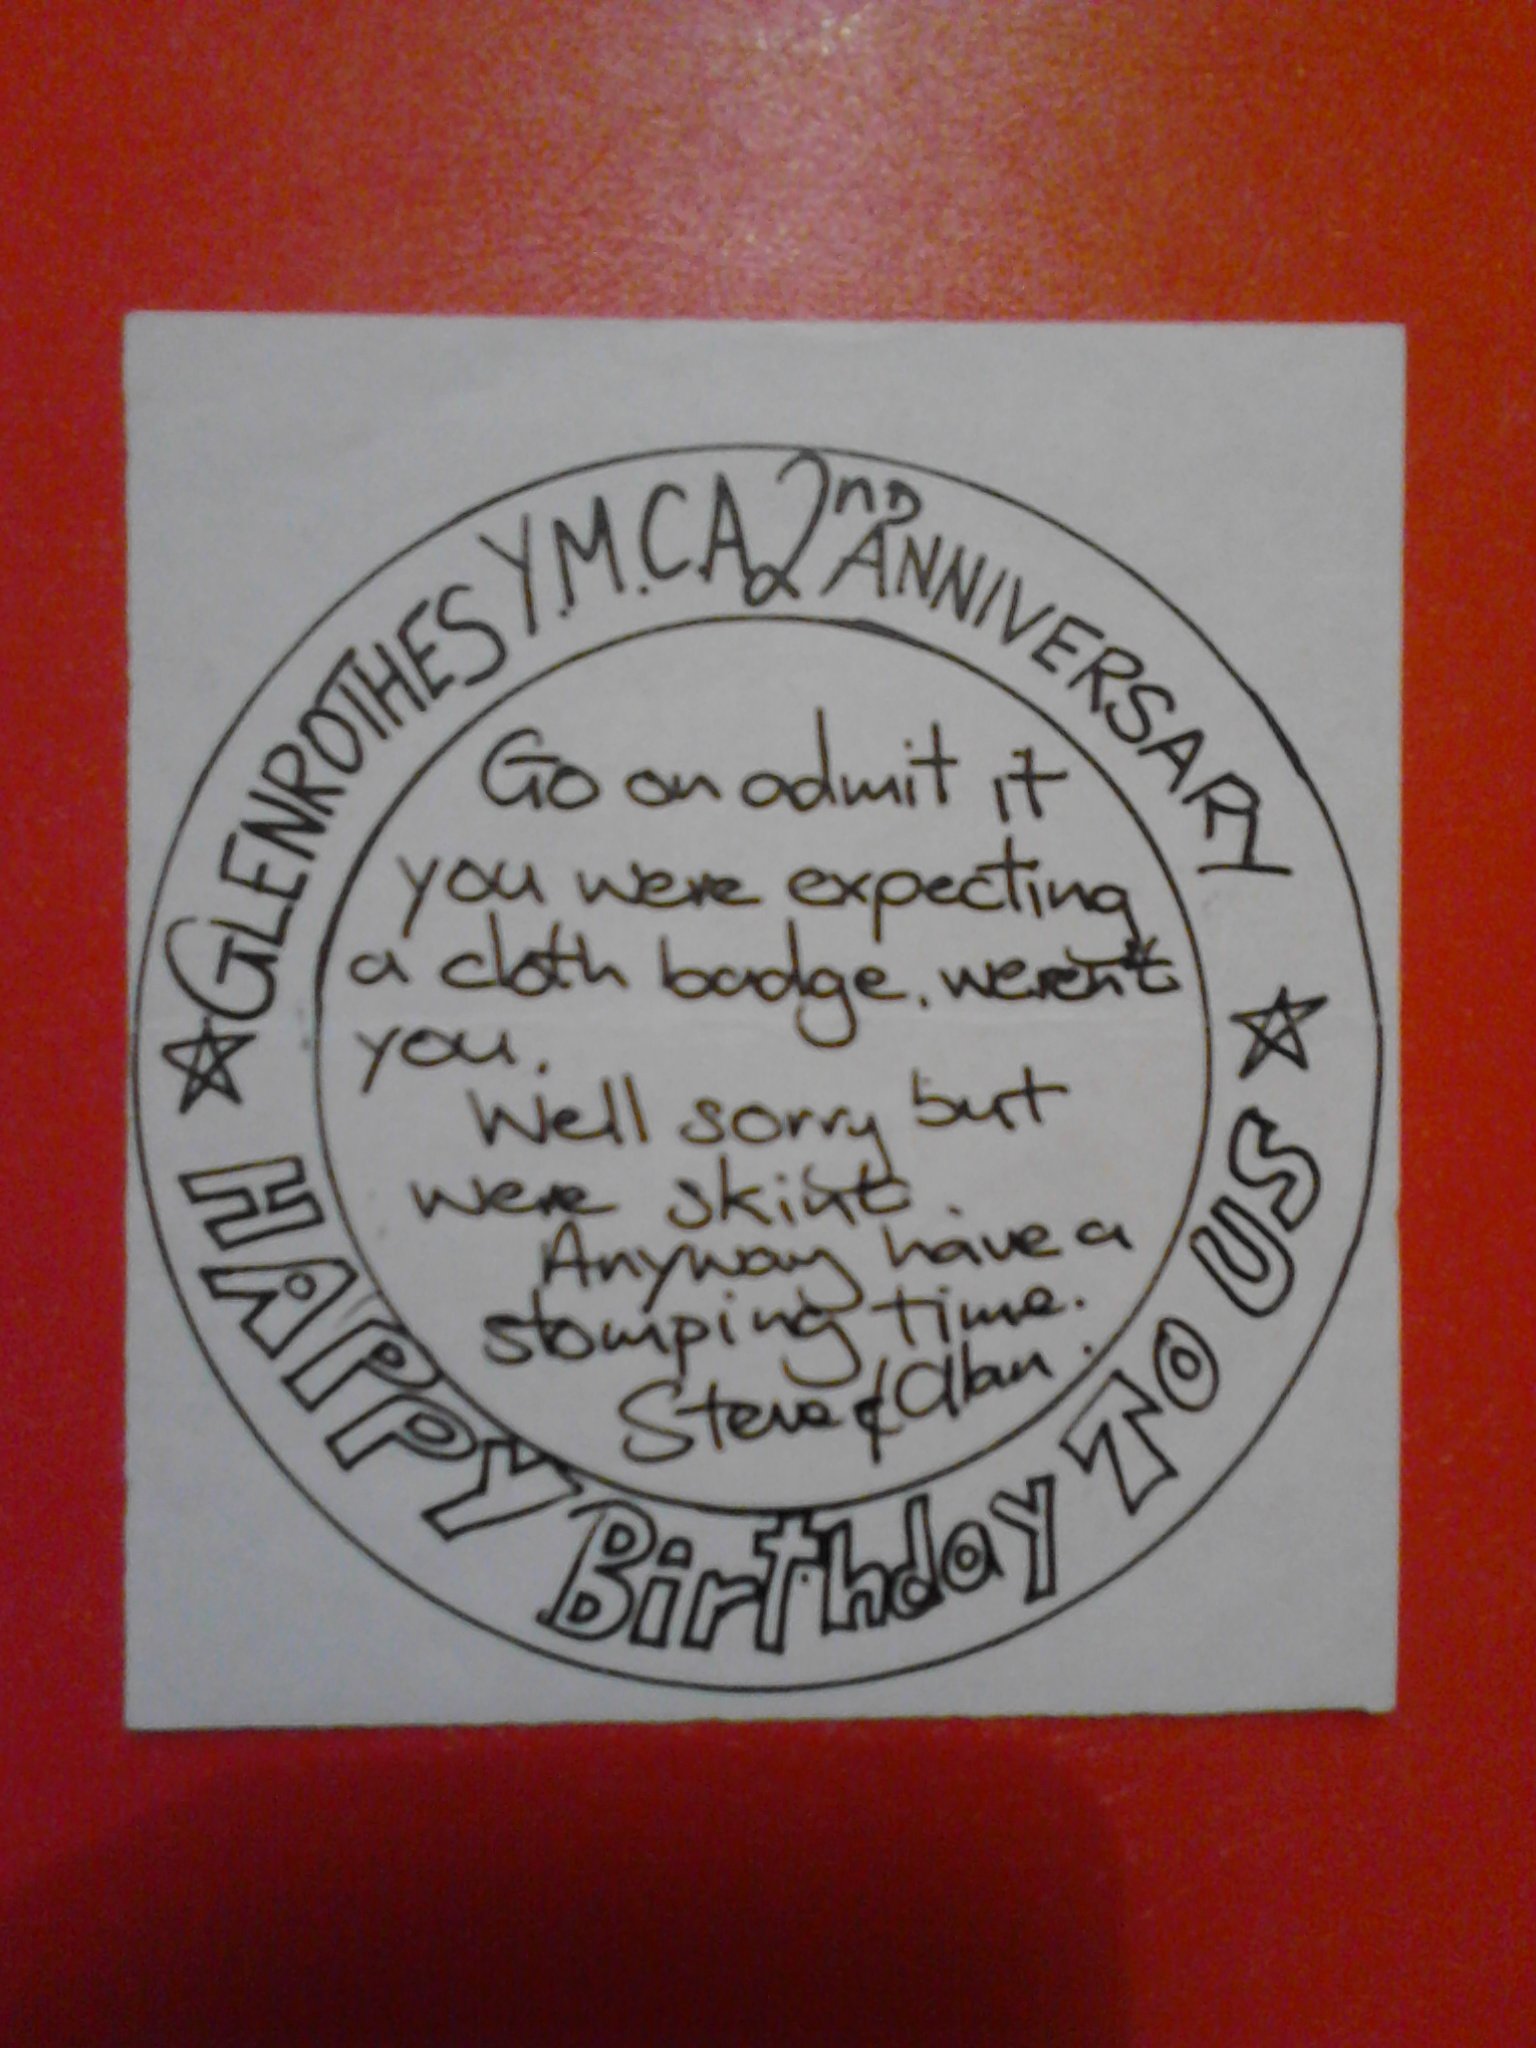 GLENROTHES Y.M.C.A. 2ND ANNIVERSARY
Go on admit it
you were expecting
a cloth badge. weren't
you.
Well sorry but
were skint.
Anyway have a
stomping time.
Steve & Alan.
HAPPY Birthday TO US